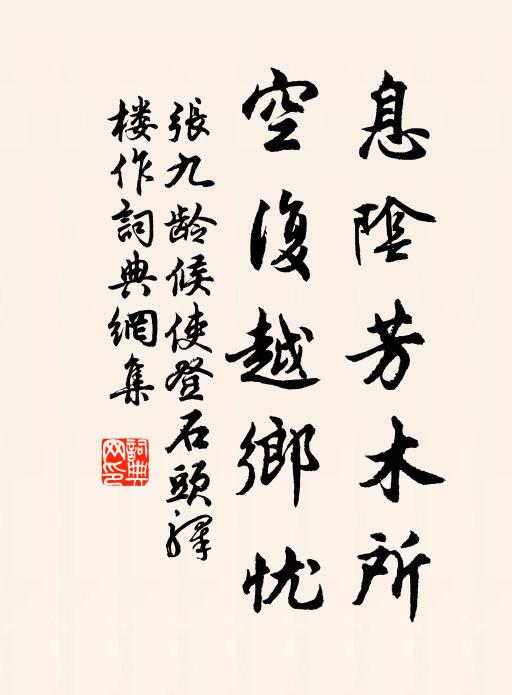 息陰芳木所
空復越鄉忧
張九龄候使登石頭驛
楼作詞典網集
詞典
网印